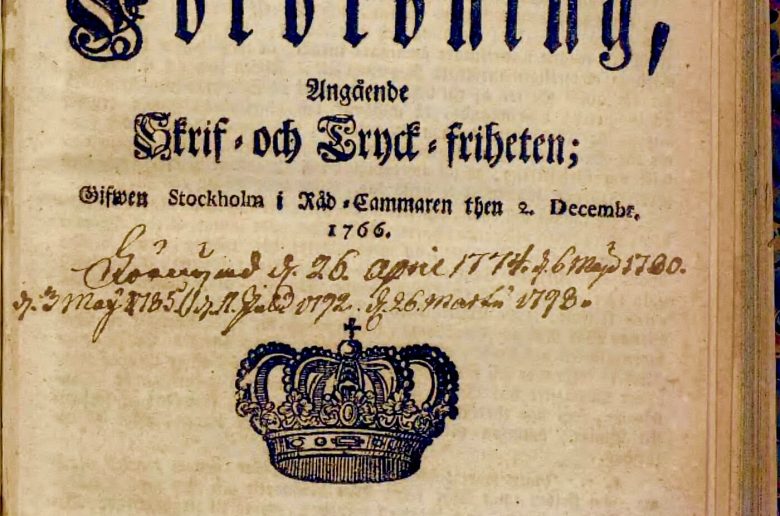 Förordning,
Angående
Skrif-och Tryck-friheten;
Gifwen Stockholm i Råd-Cammaren then 2. Decembr.
1766.
d. 26. april 1774. d. 6 Maji 1780.
d. 3 May 1785. d. 11. 1792. d. 26. Martii 1798.